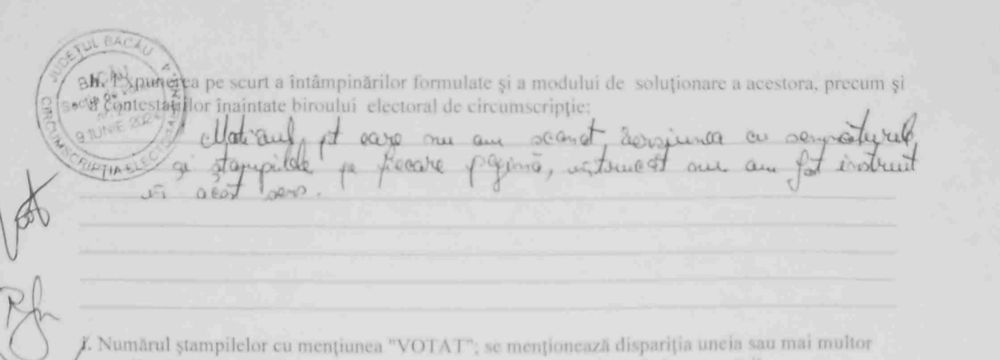 JUDEȚUL BACĂU
h. Expunerea pe scurt a întâmpinărilor formulate şi a modului de soluţionare a acestora, precum şi
a contestaţiilor înaintate biroului electoral de circumscripţie:
9 IUNIE 2024
CIRCUMSCRIPȚIA ELECTORALĂ
Motivul pt care nu am scanat versiunea cu semnăturile
şi ştampilele pe fiecare pagină, întrucât nu am fost instruit
în acest sens.
i. Numărul ştampilelor cu menţiunea "VOTAT"; se menţionează dispariţia uneia sau mai multor